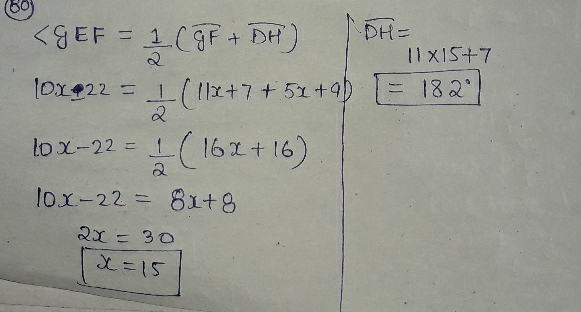 80
<gEF = 1/2 (gF + DH)
10x-22 = 1/2 (11x+7 + 5x+9)
10x-22 = 1/2 (16x+16)
10x-22 = 8x+8
2x = 30
x=15
DH=
11x15+7
= 182°